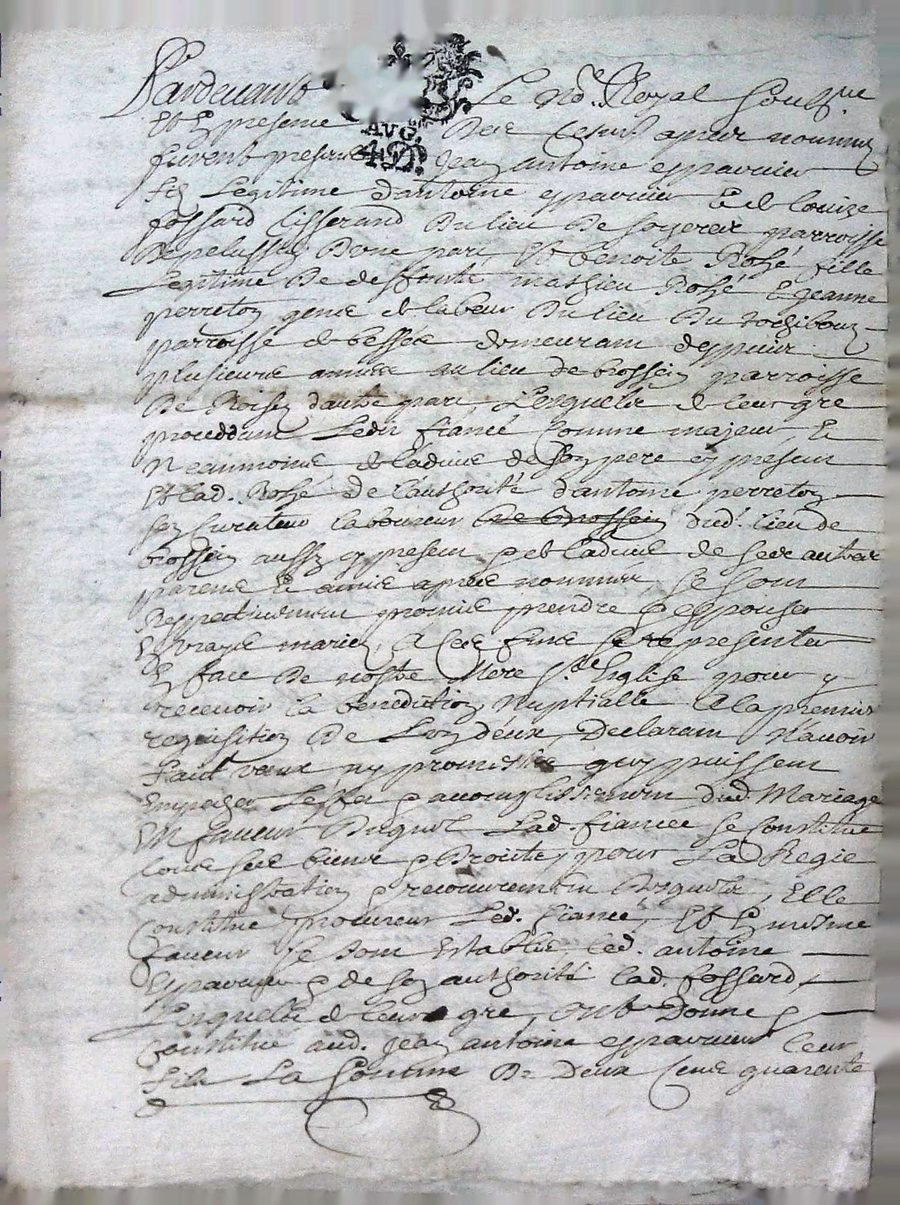 Pardevant Le No.re Royal Soub.ne
Et En presence Des Tesm. apres nommez
furent presents Jean antoine esparvier
fils Legitime d'antoine esparvier & de Louize
fossard tisserand Du lieu De parroisse
De pelussin Dune part Et benoite Rozé fille
Legitime De deffunt mathieu Rozé & Jeanne
perreton gens de labeur Du lieu Du
parroisse de bessée demeurant depuis
plusieurs année au lieu de brossein parroisse
De Roisey d'autre part Lesquels de leur gre
proceddant Ledit fiancé Comme majeur, &
Neanmoins de ladvis de son pere cy present
Et Lad. Rozé de lauthorité d'antoine perreton
son Curateur laboureur de brossein dud. lieu de
brossein aussy cy present & de ladvis de ses autres
parens & amis apres nommés, Se sont
Respectivement promis prendre & espouser
En vraye mariez, A ces fins se representer
En face De nostre Mere S.te Eglise pour y
recevoir la benediction Nuptialle A la premiere
requisition De Lon deux, Declarant Navoir
faict vœux ny promesses quy puissent
empecher Leffet & accomplissement dud. Mariage
EN faveur Duquel Lad. fiancée se Constitue
tous ses biens & Droits, pour La Regie
administration & recouvrement Desquels, Elle
Constitue procureur Led. fiancé, Et En mesme
faveur se sont Establis led. antoine
Esparvier & de son authorité lad. fossard,
Lesquels de leurs gre, ont Donné &
Constitué aud. Jean antoine esparvier leur
fils La Somme De Deux Cens quarente
AVG.
4D.